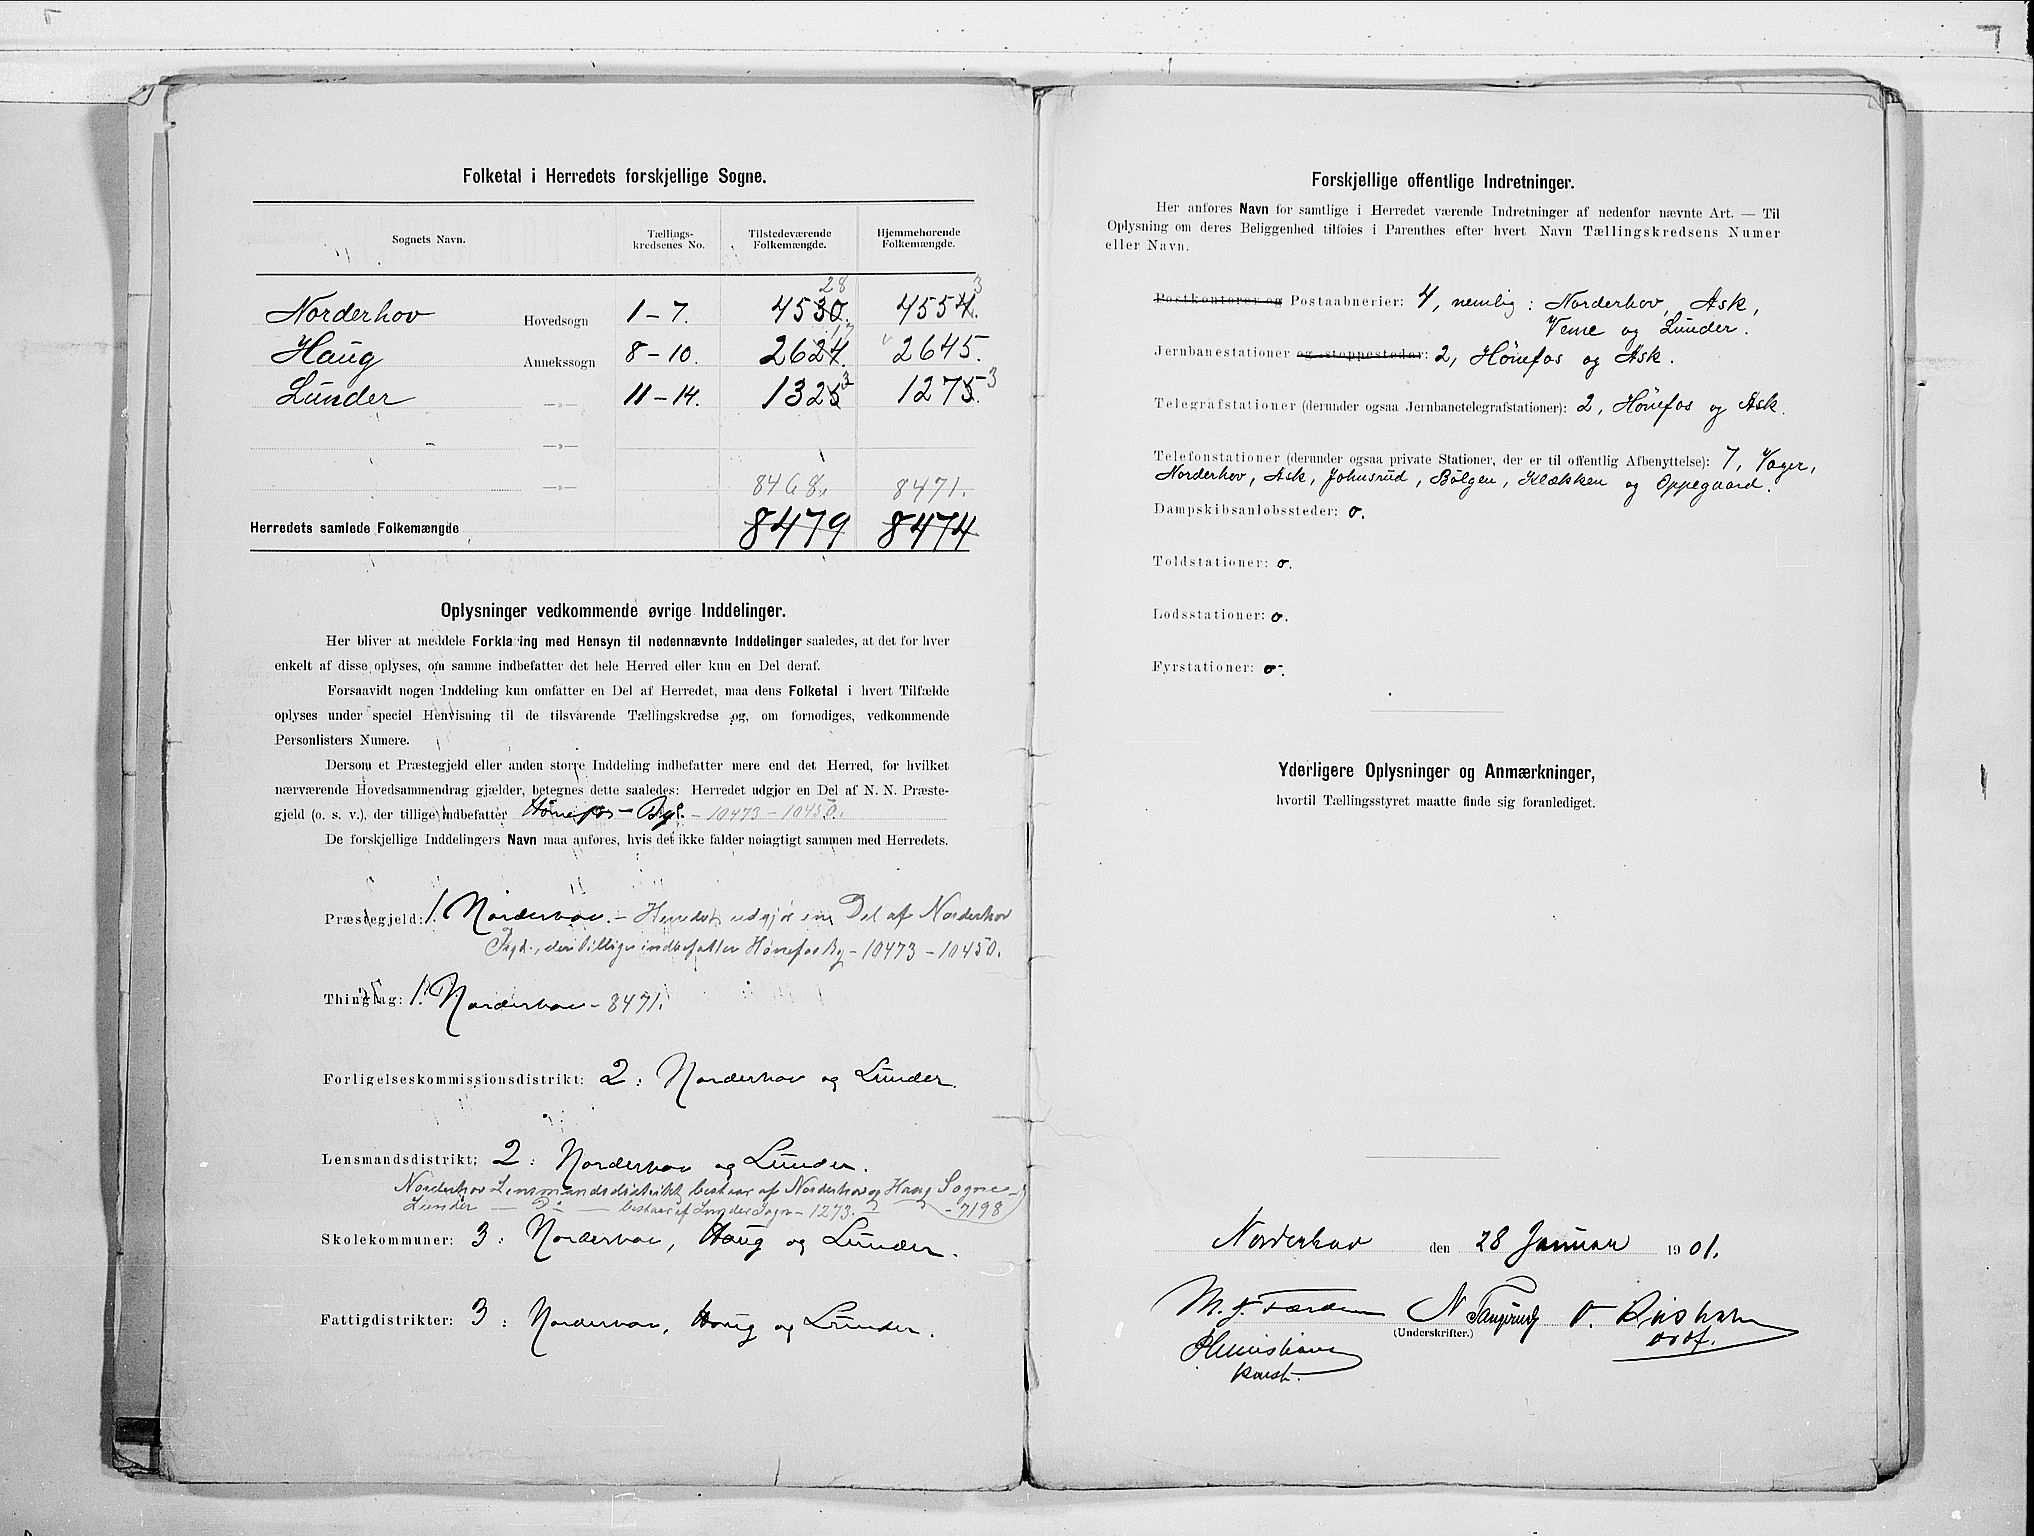 Folketal i Herredets forskjellige Sogne.
Sognets Navn. Tællings-kredsenes No. Tilstedeværende Folkemængde. Hjemmehørende Folkemængde.
28 3
Norderhov Hovedsogn 1 - 7. 4530. 4554.
17
Haug Annekssogn 8 - 10. 2624. 2645.
3 3
Lunder —»— 11 - 14. 1325 1275.
—»—
—»— 8468. 8471.
Herredets samlede Folkemængde 8479 8474
Oplysninger vedkommende øvrige Inddelinger.
Her bliver at meddele Forklaring med Hensyn til nedennævnte Inddelinger saaledes, at det for hver
enkelt af disse oplyses, om samme indbefatter det hele Herred eller kun en Del deraf.
Forsaavidt nogen Inddeling kun omfatter en Del af Herredet, maa dens Folketal i hvert Tilfælde
oplyses under speciel Henvisning til de tilsvarende Tællingskredse og, om fornødiges, vedkommende
Personlisters Numere.
Dersom et Præstegjeld eller anden større Inddeling indbefatter mere end det Herred, for hvilket
nærværende Hovedsammendrag gjælder, betegnes dette saaledes: Herredet udgjør en Del af N. N. Præste-
gjeld (o. s. v.), der tillige indbefatter Hønefos - By. - 10473 - 10450.
De forskjellige Inddelingers Navn maa anføres, hvis det ikke falder nøiagtigt sammen med Herredets.
Præstegjeld: 1. Norderhov. - Herredet udgjør en Del af Norderhov
Pgd., der tillige indbefatter Hønefos By - 10473 - 10450.
Thinglag: 1. Norderhov - 8471.
Forligelseskommissionsdistrikt: 2: Norderhov og Lunder.
Lensmandsdistrikt: 2: Norderhov og Lunder.
Norderhov Lensmandsdistrikt bestaar af Norderhov og Haug Sogne
Lunder — Do — bestaar af Lunder Sogn - 1273. - 7198
Skolekommuner: 3: Norderhov, Haug og Lunder.
Fattigdistrikter: 3: Norderhov, Haug og Lunder.
Forskjellige offentlige Indretninger.
Her anføres Navn for samtlige i Herredet værende Indretninger af nedenfor nævnte Art. — Til
Oplysning om deres Beliggenhed tilføies i Parenthes efter hvert Navn Tællingskredsens Numer
eller Navn.
Postkontorer og Postaabnerier: 4, nemlig: Norderhov, Ask,
Veme og Lunder.
Jernbanestationer og stoppesteder: 2, Hønefos og Ask.
Telegrafstationer (derunder ogsaa Jernbanetelegrafstationer): 2, Hønefos og Ask.
Telefonstationer (derunder ogsaa private Stationer, der er til offentlig Afbenyttelse): 7, Vager,
Norderhov, Ask, Johnsrud, Bølgen, Klækken og Oppegaard.
Dampskibsanløbssteder: o.
Toldstationer: o.
Lodsstationer: o.
Fyrstationer: o.
Yderligere Oplysninger og Anmærkninger,
hvortil Tællingsstyret maatte finde sig foranlediget.
Norderhov den 28 Januar 1901.
M. J. Færden N
(Underskrifter.)